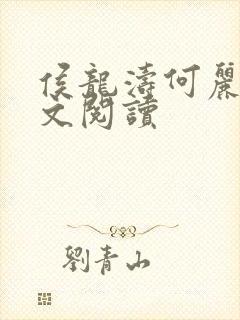 侯龍濤何麗
文閱讀
劉青山